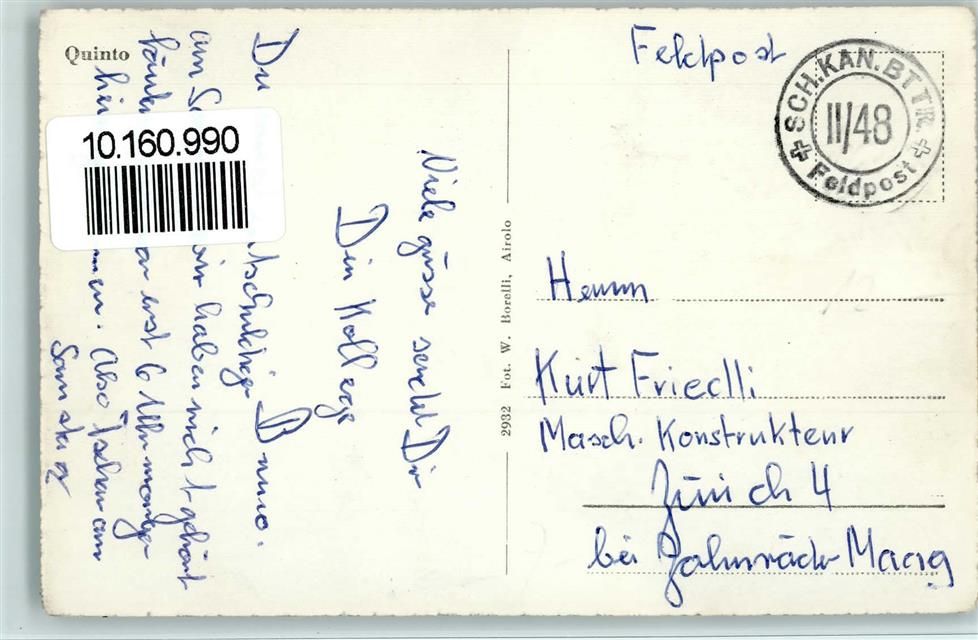 Quinto
10.160.990
Du
tschuldige Bruno.
am
wir haben nicht gehört
erst 6 Uhr morgen
men. Also Tschau am
Samstag
Viele güsse sendet Dir
Din Kollege
2932 Fot. W. Borelli, Airolo
Feldpost
SCH.KAN.BTTR.
II/48
Feldpost
Herrn
Kurt Friedli
Masch. Konstrukteur
Zürich 4
bei Zahnräder Maag